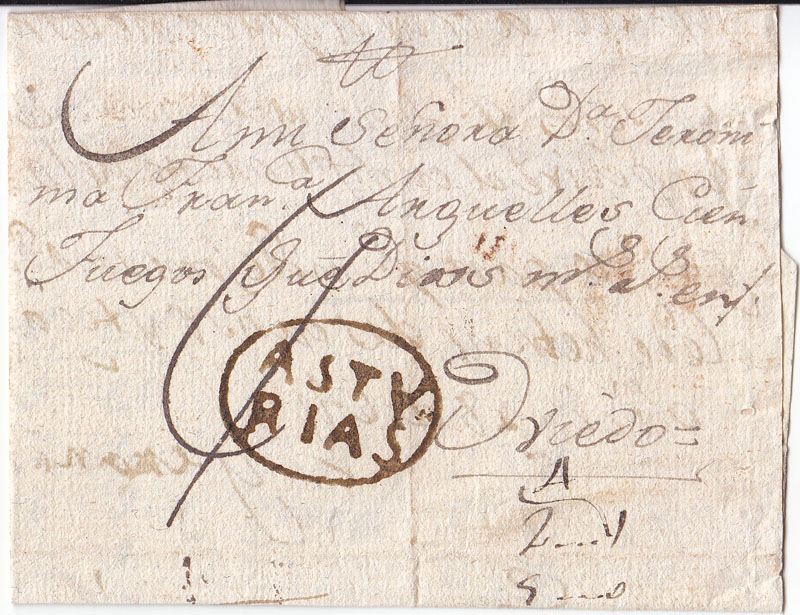 A mi Señora D.ª Teroni
ma Fran.ª Arguelles Cien
Fuegos Que Dios m.s a.s en
ASTV
RIAS
Oviedo =
A